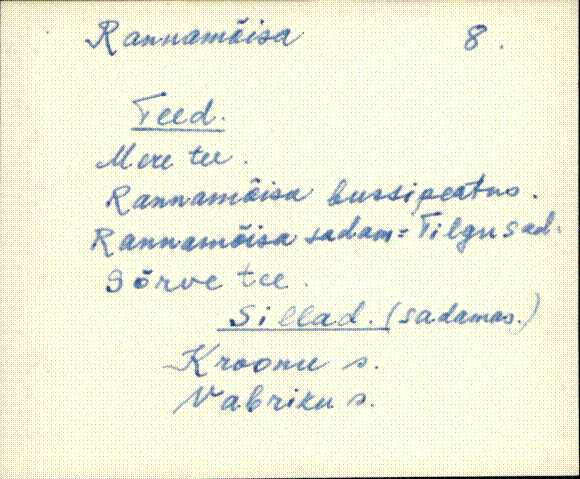 Rannamõisa 8.
Teed.
Mere tee.
Rannamõisa bussipeatus.
Rannamõisa sadam = Tilgu sad.
Sõrve tee.
Sillad. (sadamas.)
Kroonu s.
Vabriku s.